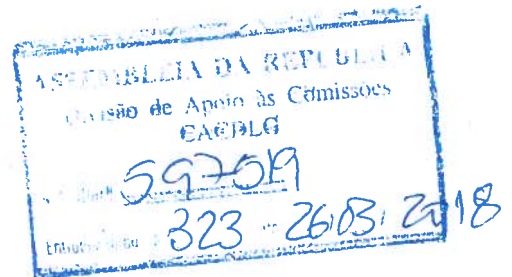 ASSEMBLEIA DA REPÚBLICA
Divisão de Apoio às Comissões
CACDLG
597519
323 26/03/2018